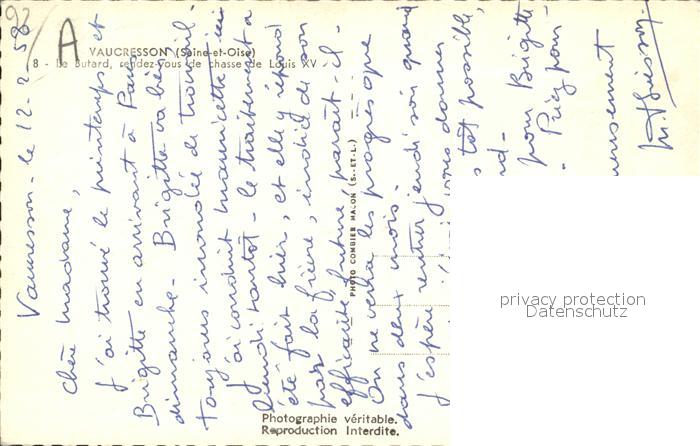 92
A
VAUCRESSON (Seine-et-Oise)
8 - Le Butard, rendez-vous de chasse de Louis XV
Vaucresson - le 12-2-58
Chère Madame,
J'ai trouvé le printemps et
Brigitte en arrivant à Paris
dimanche - Brigitte va bien
toujours inondée de travail -
J'ai conduit Mauricette
lundi tantôt - le traitement a
été fait hier, et elle y répond
par la fièvre, indice de son
efficacité future, paraît-il -
On ne verra les progrès que
dans deux mois -
J'espère rentrer jeudi soir quand
vous donner
tôt possible,
pour Brigitte
Puy pour
PHOTO COMBIER MACON (S.-ET-L.)
Photographie véritable.
Reproduction Interdite.
privacy protection
Datenschutz